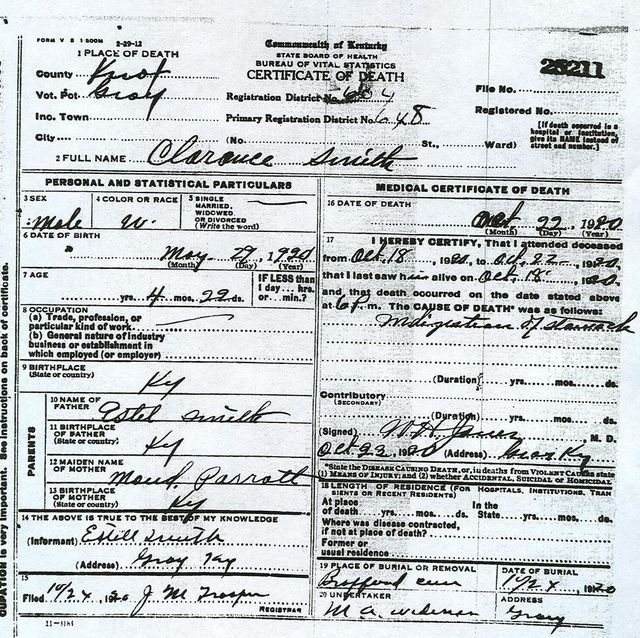 FORM V S 1 500M
2-29-12
1 PLACE OF DEATH
County Knox
Vot. Pct. Gray
Inc. Town
City
Commonwealth of Kentucky
STATE BOARD OF HEALTH
BUREAU OF VITAL STATISTICS
CERTIFICATE OF DEATH
Registration District No.
Primary Registration District No. 648
(No. St., Ward)
File No. 25211
Registered No.
[If death occurred in a
hospital or institution,
give its NAME instead of
street and number.]
2 FULL NAME Clarence Smith
PERSONAL AND STATISTICAL PARTICULARS
3 SEX
Male
4 COLOR OR RACE
W.
5 SINGLE
MARRIED,
WIDOWED
OR DIVORCED
(Write the word)
6 DATE OF BIRTH
May 29, 1920
(Month) (Day) (Year)
7 AGE
yrs. 4 mos. 22 ds.
IF LESS than
1 day... hrs.
or... min.?
8 OCCUPATION
(a) Trade, profession, or
particular kind of work
(b) General nature of industry
business or establishment in
which employed (or employer)
9 BIRTHPLACE
(State or country) Ky
PARENTS
10 NAME OF
FATHER Estel Smith
11 BIRTHPLACE
OF FATHER
(State or country) Ky
12 MAIDEN NAME
OF MOTHER Maud Parrott
13 BIRTHPLACE
OF MOTHER
(State or country) Ky
14 THE ABOVE IS TRUE TO THE BEST OF MY KNOWLEDGE
(Informant) Estill Smith
(Address) Gray
15
Filed 10/24, 1920 J. M.
REGISTRAR
11-3184
MEDICAL CERTIFICATE OF DEATH
16 DATE OF DEATH
Oct 22, 1920
(Month) (Day) (Year)
17 I HEREBY CERTIFY, That I attended deceased
from Oct 18, 1920, to Oct 22, 1920,
that I last saw him alive on Oct 18, 1920,
and that death occurred on the date stated above
at 6 P m. The CAUSE OF DEATH* was as follows:
Indigestion of stomach
(Duration) yrs. mos. ds.
Contributory
(SECONDARY)
(Duration) yrs. mos. ds.
(Signed) W. H. M. D.
Oct 22, 1920 (Address) Gray Ky
*State the DISEASE CAUSING DEATH, or, in deaths from VIOLENT CAUSES state
(1) MEANS OF INJURY; and (2) whether ACCIDENTAL, SUICIDAL or HOMICIDAL
18 LENGTH OF RESIDENCE (FOR HOSPITALS, INSTITUTIONS, TRAN
SIENTS OR RECENT RESIDENTS)
At place
of death yrs. mos. ds.
In the
State yrs. mos. ds.
Where was disease contracted,
if not at place of death?
Former or
usual residence
19 PLACE OF BURIAL OR REMOVAL
DATE OF BURIAL
10/24, 1920
20 UNDERTAKER
M. A.
ADDRESS
Gray
CUPATION is very important. See instructions on back of certificate.